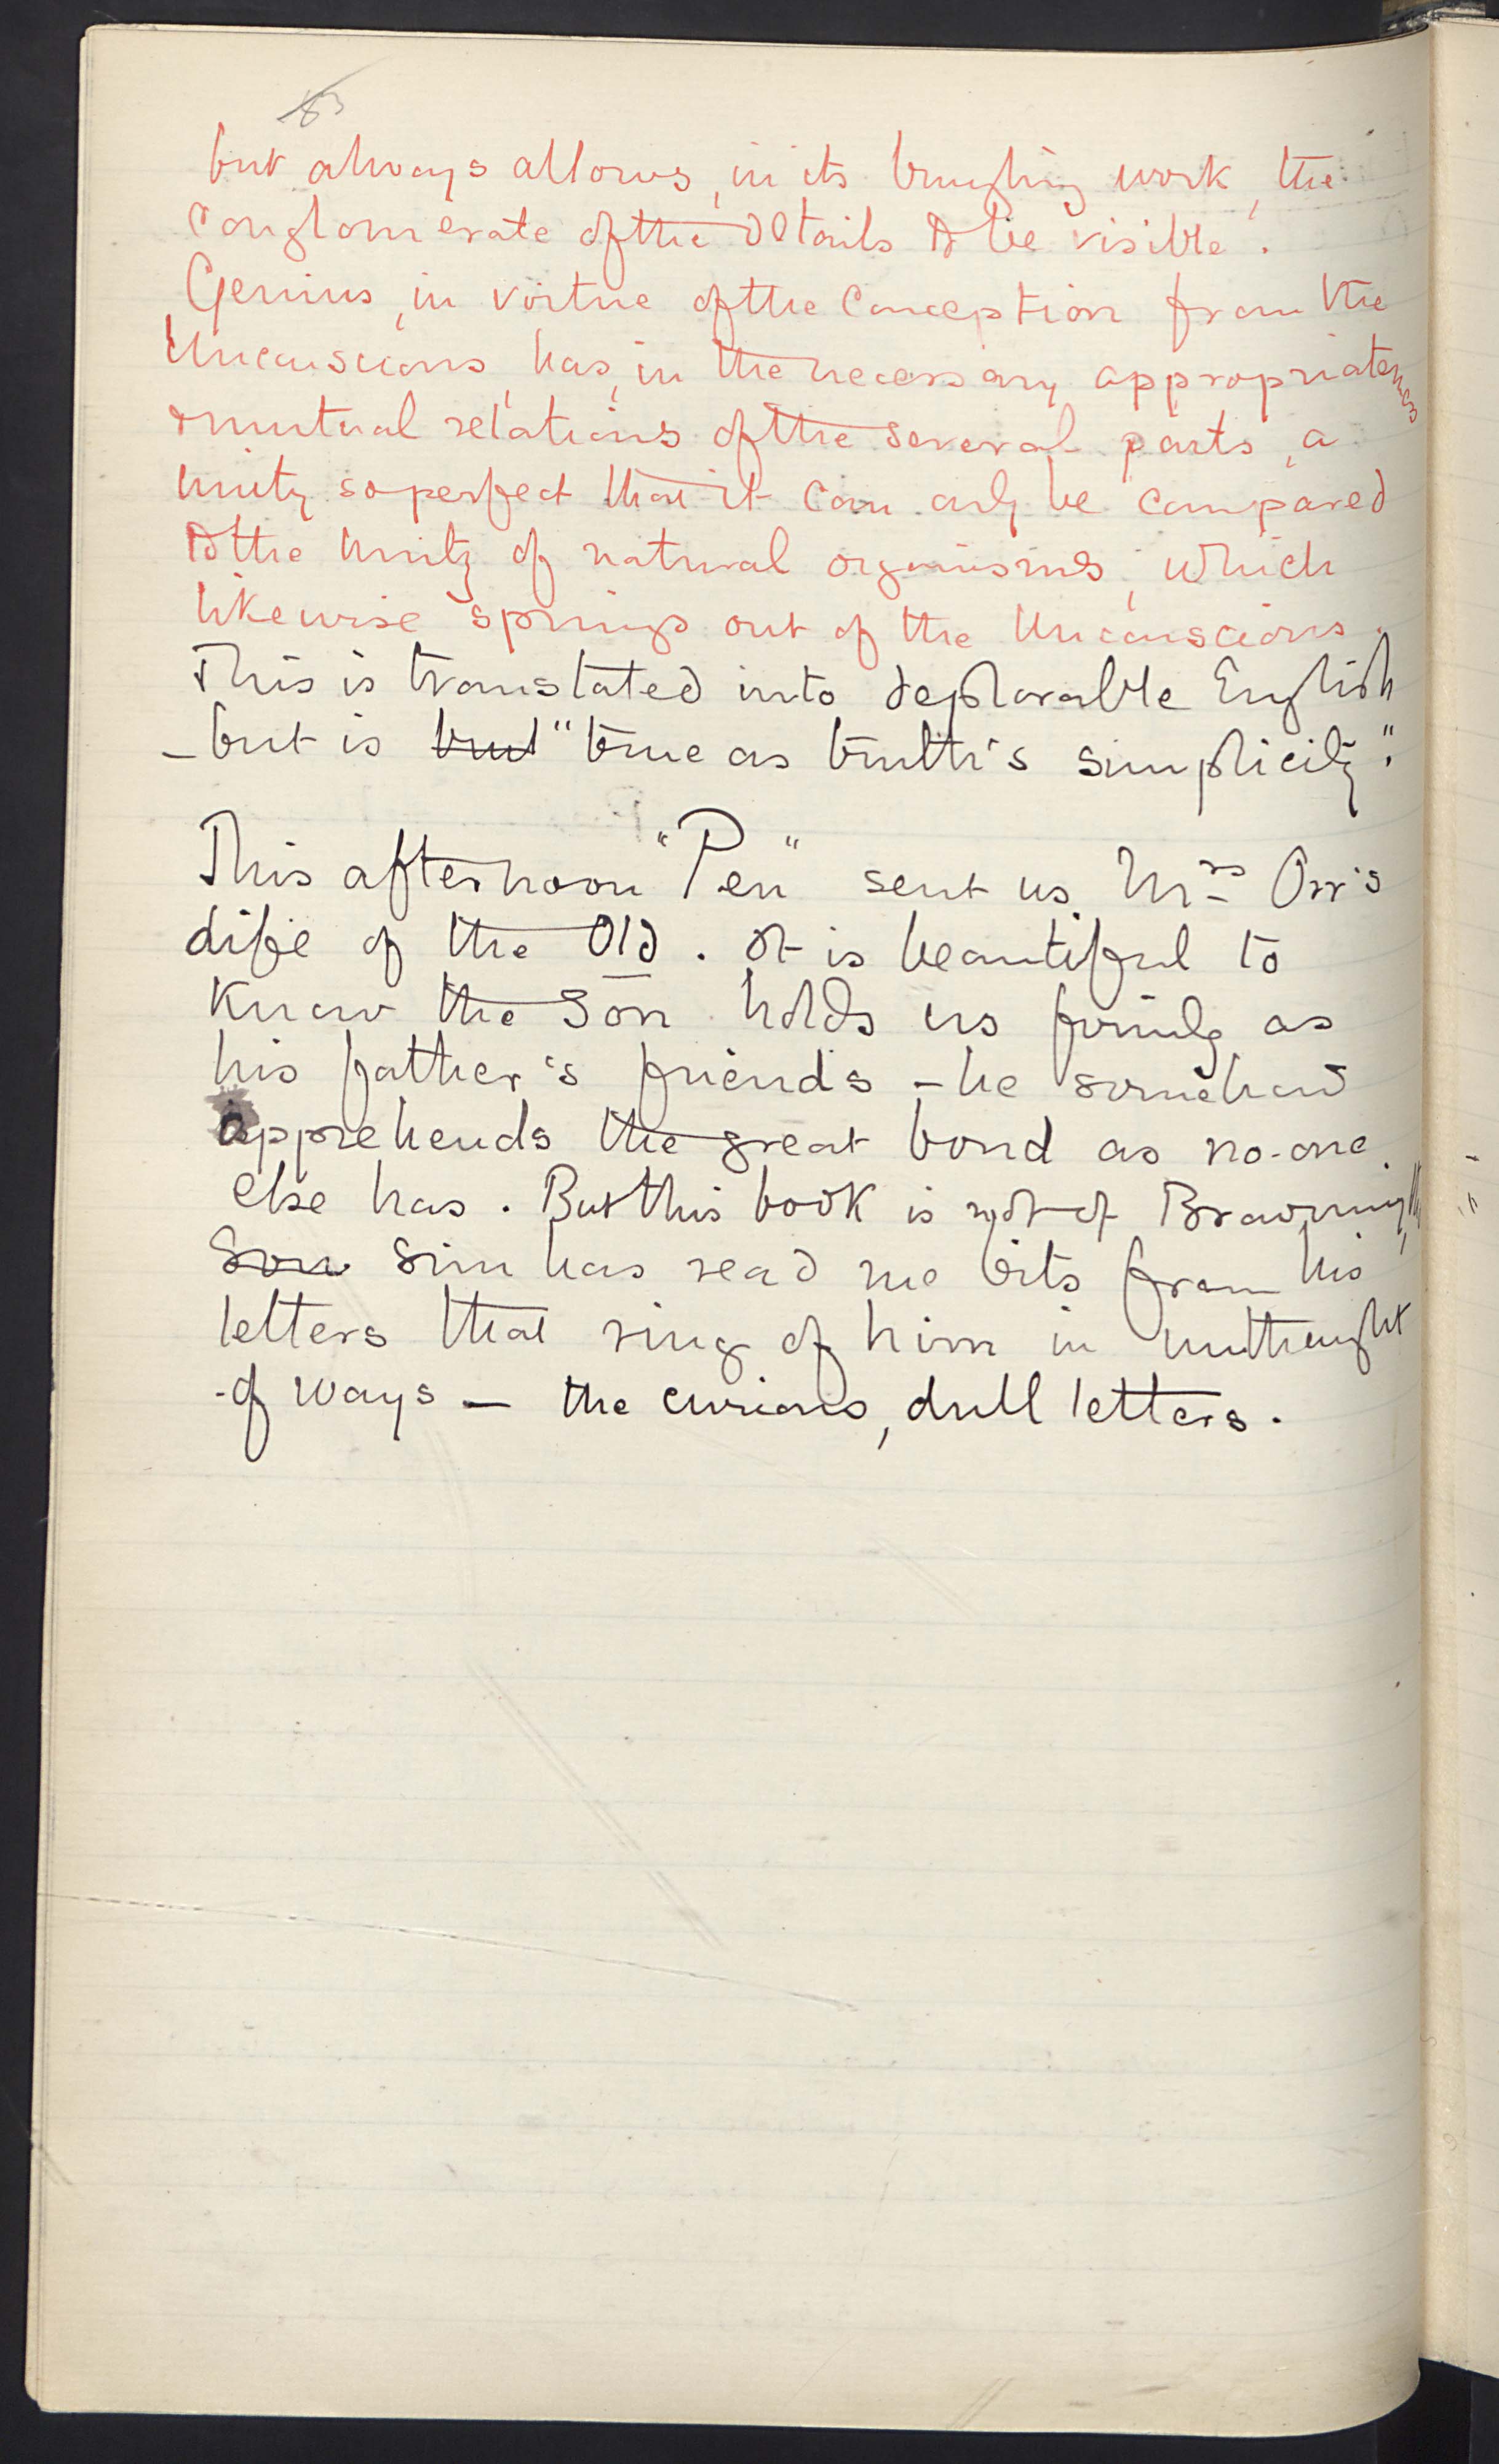 but always allows, in its bungling work, the
conglomerate of the details to be visible.
Genius, in virtue of the Conception from the
Unconscious, has, in the necessary appropriateness
& mutual relations of the several parts, a
unity so perfect that it can only be compared
to the unity of natural organisms, which
likewise springs out of the Unconscious.
This is translated into deplorable English
– but is "true as truth's simplicity".
This afternoon "Pen" sent us Mrs Orr's
Life of the Old. It is beautiful to
know the Son holds us firmly as
his father's friends – he somehow
apprehends the great bond as no-one
else has. But this book is not of Browning,
Sou Sim has read me bits from his
letters that ring of him in unthought
-of ways – the curious, dull letters.